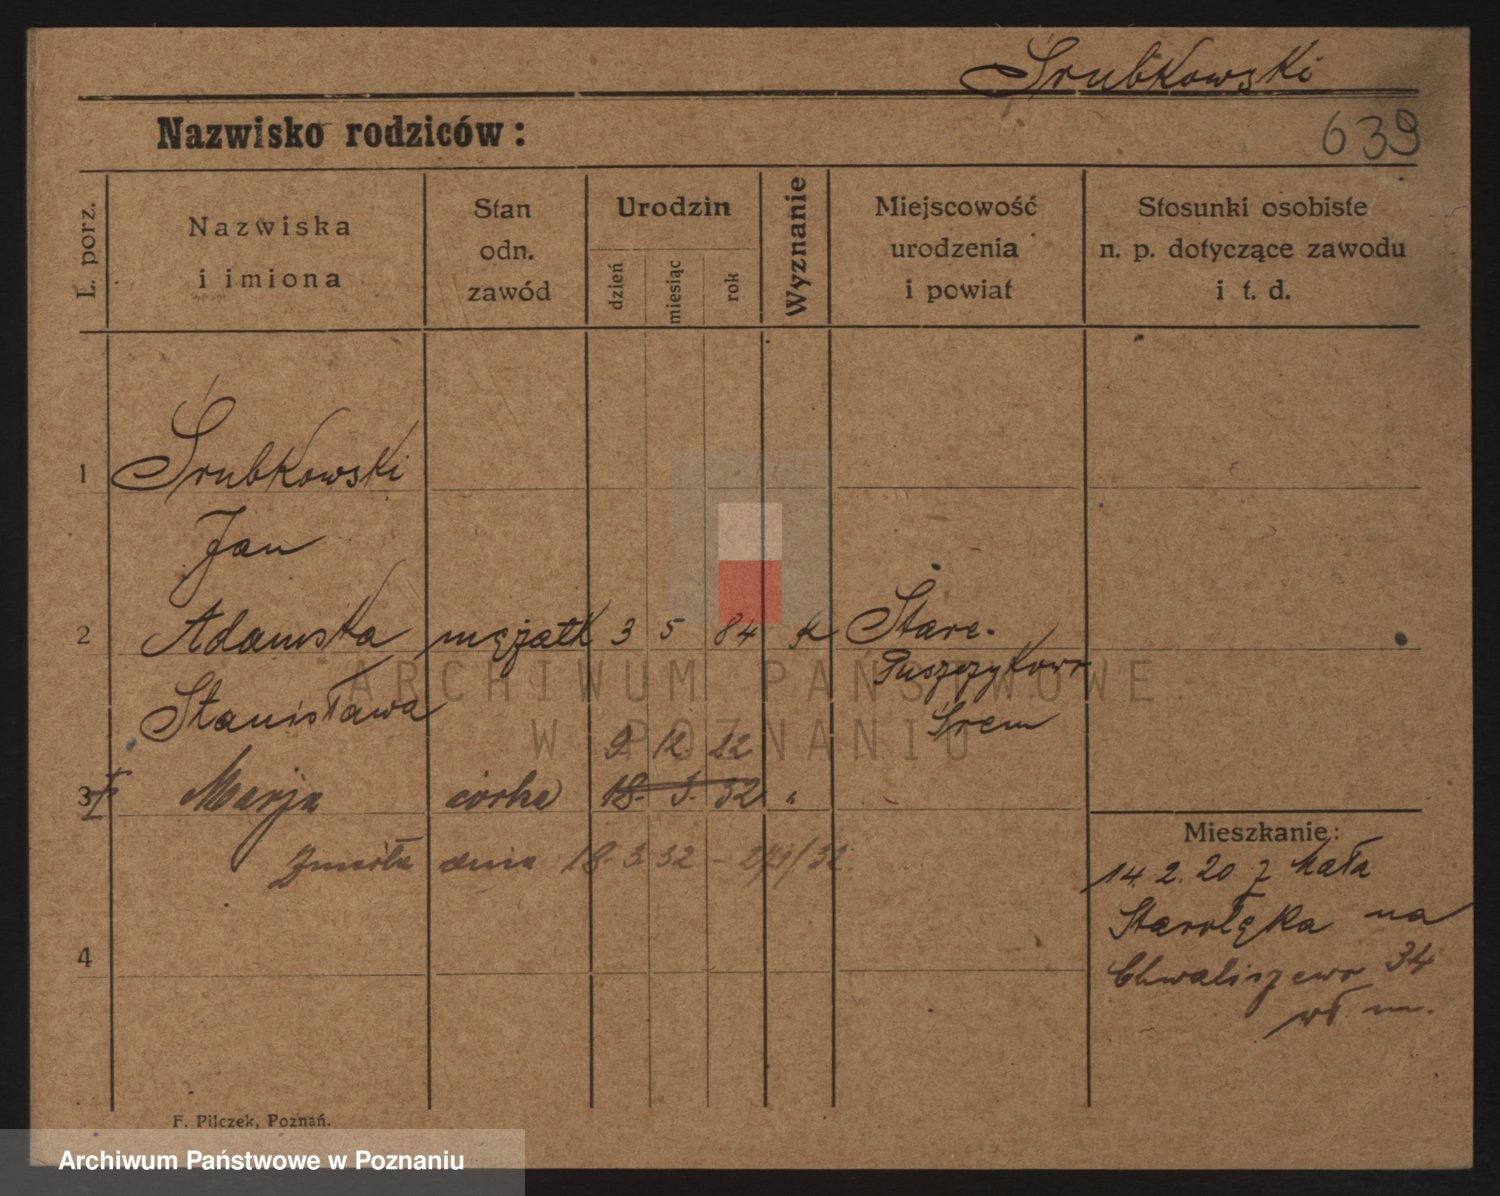 Śrubkowski
Nazwisko rodziców:
639
L. porz.
Nazwiska
i imiona
Stan
odn.
zawód
Urodzin
dzień
miesiąc
rok
Wyznanie
Miejscowość
urodzenia
i powiat
Stosunki osobiste
n. p. dotyczące zawodu
i t. d.
1 Śrubkowski
Jan
2 Adamska mężatk 3 5 84 k Stare-
Puszczykowo
Stanisława Śrem
9 12 22
3 Marja córka 18. 3. 32 "
Zmarła dnia 18. 3. 32 -
4
Mieszkanie:
14. 2. 20 z Mała
Starołęka na
Chwaliszewo 34
wł. m.
F. Pilczek, Poznań.
ARCHIWUM PAŃSTWOWE
W POZNANIU
Archiwum Państwowe w Poznaniu